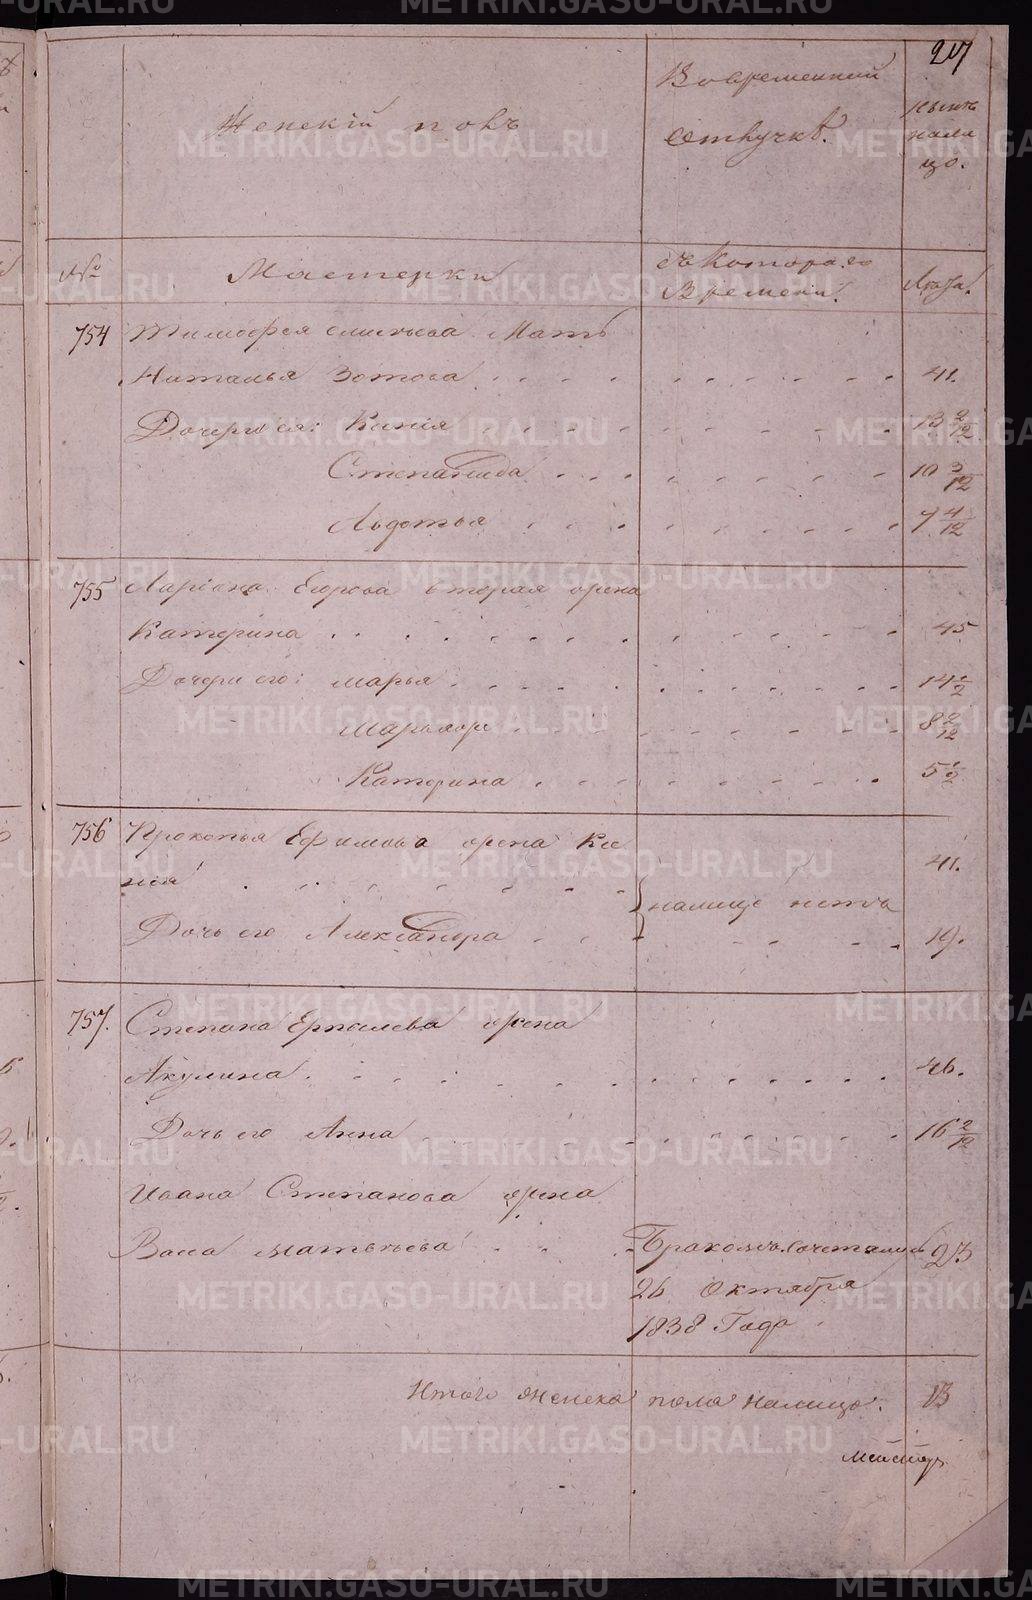 217
Женскій полъ
Вовременной
отлучкѣ.
нынѣ
нали
цо.
№
Мастерки
съ котораго
времени.
Лѣта.
754
Мать
Наталья Зотова
41.
Дочери ея: Ксенія
13 2/12
Степанида
10 3/12
Авдотья
7 4/12
755
Ларіона Егорова вторая жена
Катерина
45
Дочери его: Марья
14 1/2
8 2/12
Катерина
5 1/2
756
Прокопья Ефимова жена Ксе
нія
41.
налицо нетъ
Дочь его Александра
19.
757.
Степана жена
Акулина
46.
Дочь его Анна
16 2/12
Ивана Степанова жена
Васса Матвѣева
Бракомъ сочетались
23
26 Октября
1838 Года
Итого женска пола налицо.
13
METRIKI.GASO-URAL.RU